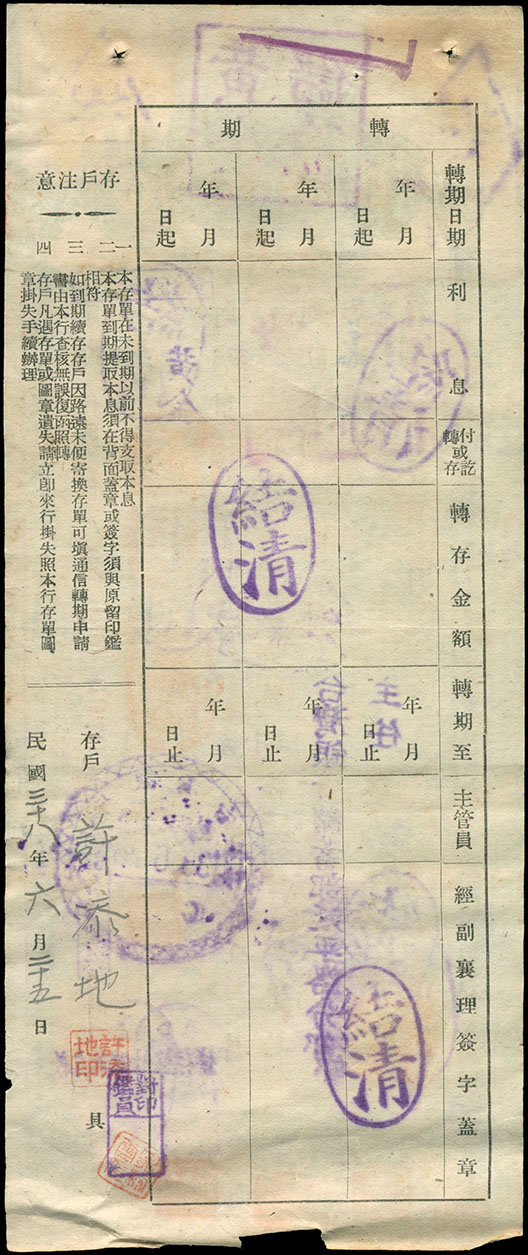 轉期
轉期日期
年月日起
年月日起
年月日起
利息
付訖或轉存
轉存金額
轉期至
年月日止
年月日止
年月日止
主管員
經副襄理簽字蓋章
結清
結清
主任
存戶注意
一 本存單在未到期以前不得支取本息
二 本存單到期提取本息須在背面蓋章或簽字須與原留印鑑
相符
三 如到期續存存戶因路遠未便寄換存單可塡通信轉期申請
書由本行查核無誤復函照轉
四 存戶凡遇存單或圖章遺失請立卽來行掛失照本行存單圖
章掛失手續辦理
存戶 許添地 具
許添地印
對印員
民國三十八年六月二十五日